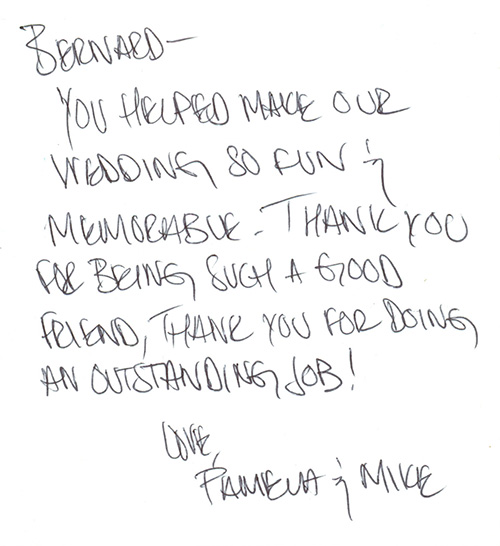 BERNARD—
YOU HELPED MAKE OUR
WEDDING SO FUN &
MEMORABLE. THANK YOU
FOR BEING SUCH A GOOD
FRIEND, THANK YOU FOR DOING
AN OUTSTANDING JOB!
LOVE,
PAMELA & MIKE